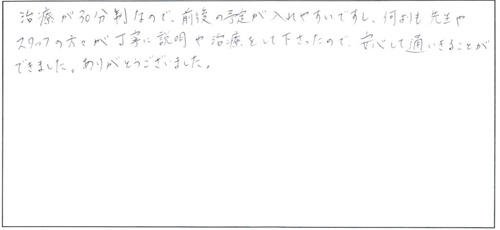 治療が30分制なので、前後の予定が入れやすいですし、何よりも先生や
スタッフの方々が丁寧に説明や治療をして下さったので、安心して通いきることが
できました。ありがとうございました。